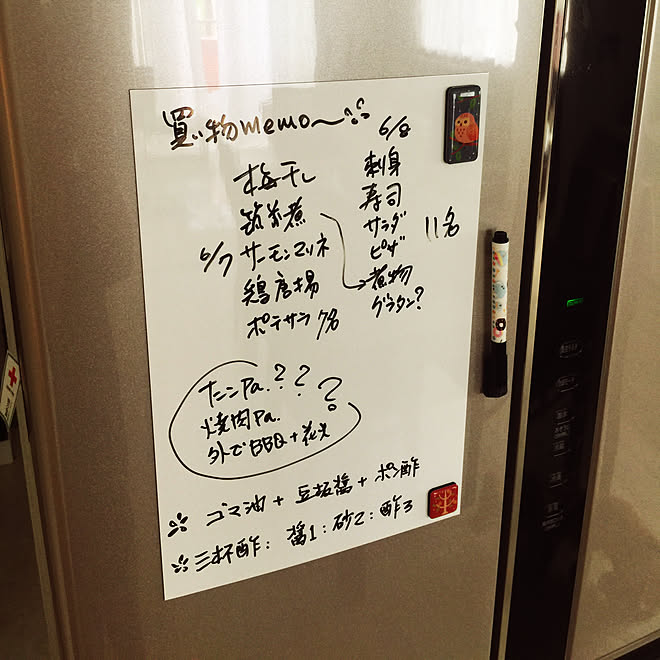 買い物memo〜
梅干し
筑前煮
6/7 サーモンマリネ
鶏唐揚
ポテサラ 7名
6/8
刺身
寿司
サラダ 11名
ピザ
煮物
グラタン?
たこPa.??
焼肉Pa. ?
外でBBQ+花火
※ ゴマ油 + 豆板醤 + ポン酢
※ 三杯酢: 醤1:砂2:酢3